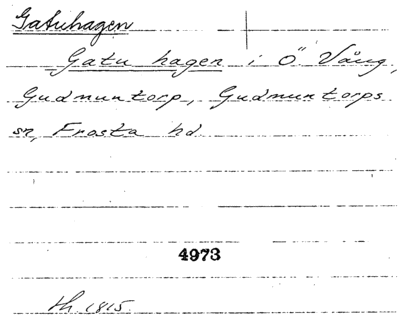 Gatuhagen
Gatu hagen i Ö Vång,
Gudmuntorp, Gudmuntorps
sn, Frosta hd
4973
th 1815